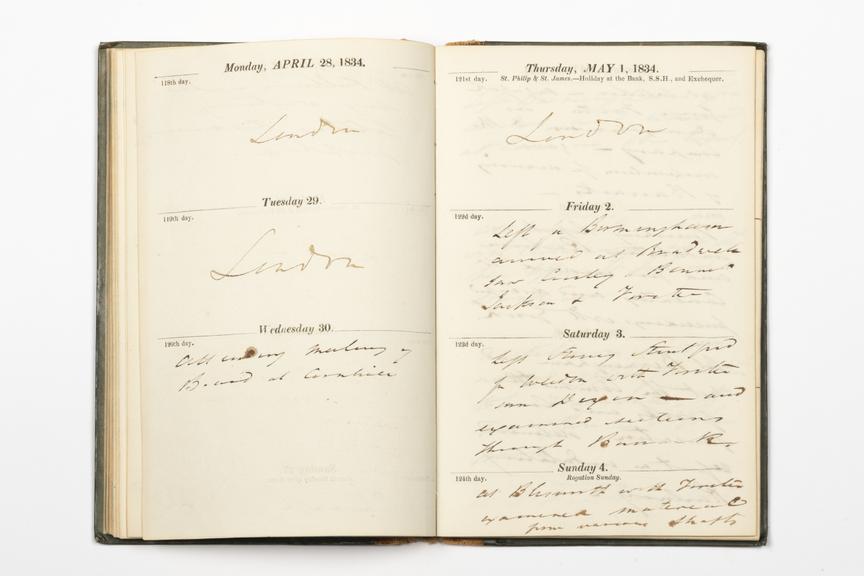 Monday, APRIL 28, 1834.
118th day.
London
Tuesday 29.
119th day.
London
Wednesday 30.
120th day.
Attending meeting of
Board at Cornhill
Thursday, MAY 1, 1834.
121st day. St. Philip & St. James.—Holiday at the Bank, S.S.H., and Exchequer.
London
Friday 2.
122d day.
Left Birmingham
arrived at
Jackson & Forster
Saturday 3.
123d day.
Left Stony Stratford
for Weedon with Forster
and
examined sections
through
Sunday 4.
124th day. Rogation Sunday.
at Blisworth with Forster
examined material
from various Shafts